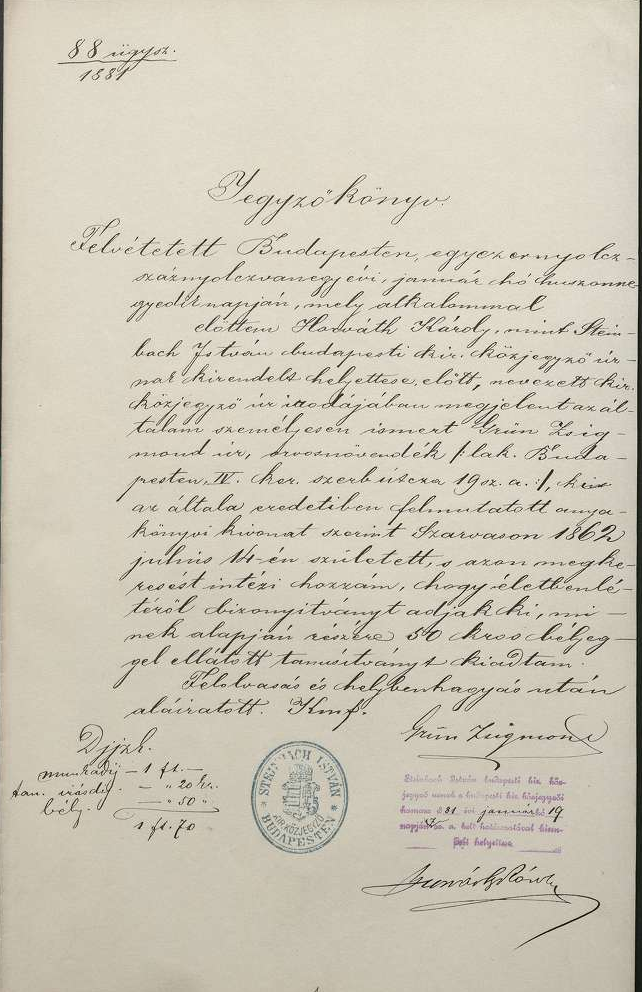 88 ügysz.
1881
Jegyzőkönyv.
Felvétetett Budapesten, egyezernyolcz-
száznyolczvanegy évi, január hó huszonne
gyedik napján, mely alkalommal
előttem Horváth Károly, mint Stein-
bach István budapesti kir. közjegyző úr-
nak kirendelt helyettese előtt, nevezett kir.
közjegyző úr irodájában megjelent az ál-
talam személyesen ismert Grün Zsig-
mond úr, orvosnövendék /:lak. Buda-
pesten, IV. ker. szerb útcza 19 sz. a.:/, ki
az általa eredetiben felmutatott anya-
könyvi kivonat szerint Szarvason 1862
julius 14-én született, s azon megke-
resést intézi hozzám, hogy életbenlé-
téről bizonyitványt adjak ki, mi-
nek alapján részére 50 kros bélyeg-
gel ellátott tanusítványt kiadtam.
Felolvasás és helybenhagyás után
aláiratott. Kmf.
Grün Zsigmond
Díjjzk.
munkadíj – 1 ft. –
tan. iásdíj. – „ 20 kr.
bély. – „ 50 „
1 ft. 70
STEINBACH ISTVÁN
KIR. KÖZJEGYZŐ
BUDAPESTEN
Steinbach István budapesti kir. köz-
jegyző urnak a budapesti kir. közjegyzői
kamara 881 évi január hó 19
napján a. kelt határozatával kiren-
delt helyettese
Horváth Károly